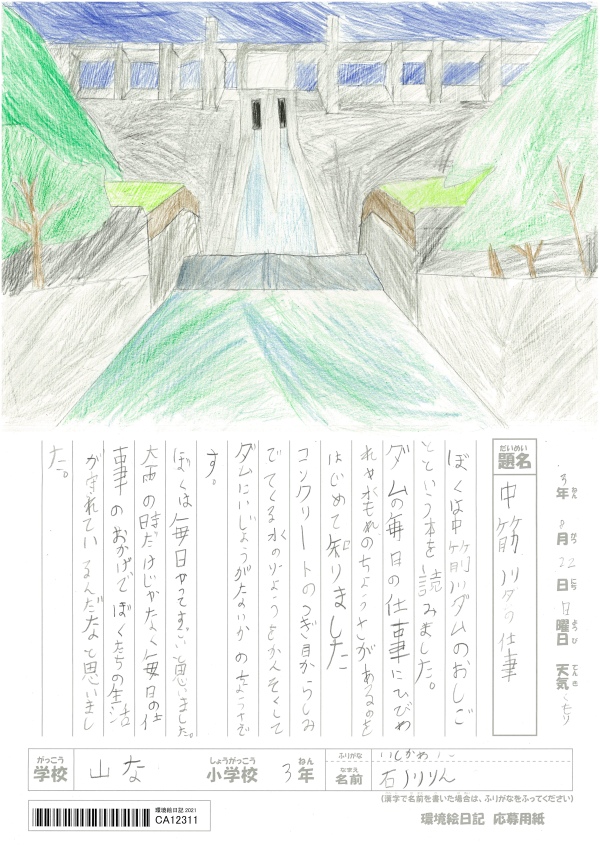 3年 8月 22日 日曜日 天気 くもり
ねん がつ にち ようび てんき
だいめい
題名
中筋川ダムの仕事
ぼくは中筋川ダムのおしご
とという本を読みました。
ダムの毎日の仕事にひびわ
れや水もれのちょうさがあるのを
はじめて知りました
コンクリートのつぎ目からしみ
でてくる水のりょうをかんそくして
ダムにいじょうがないかのちょうさで
す。
ぼくは毎日やってすごいと思いました。
大雨の時だけじゃなく毎日の仕
事のおかげでぼくたちの生活
が守れているんだなと思いまし
た。
がっこう
学校 山な
しょうがっこう
小学校 3年
ねん
ふりがな いしかわ
なまえ
名前 石川
(漢字で名前を書いた場合は、ふりがなをふってください)
環境絵日記 2021
CA12311
環境絵日記 応募用紙